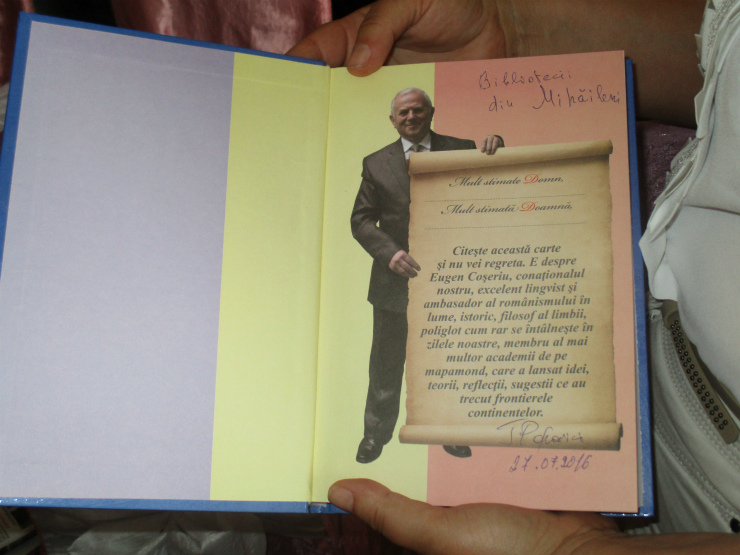 Bibliotecii
din Mihăileni
Mult stimate Domn,
Mult stimată Doamnă,
Citește această carte
și nu vei regreta. E despre
Eugen Coșeriu, conaționalul
nostru, excelent lingvist și
ambasador al românismului în
lume, istoric, filosof al limbii,
poliglot cum rar se întâlnește în
zilele noastre, membru al mai
multor academii de pe
mapamond, care a lansat idei,
teorii, reflecții, sugestii ce au
trecut frontierele
continentelor.
27.07.2016